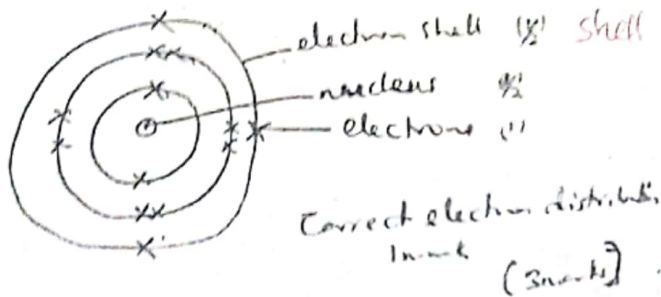 electron shell (½) shell
nucleus ½
electrons (1)
Correct electron distributi
1mark
(3marks)